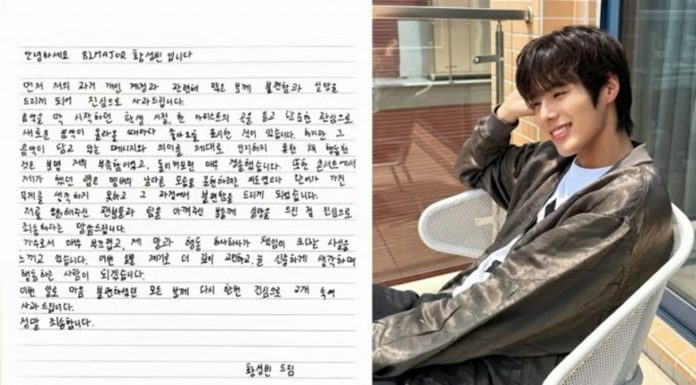 안녕하세요 82MAJOR 황성빈 입니다
먼저 저의 과거 개인 계정과 관련해 많은 분께 불편함과 실망을
드리게 되어 진심으로 사과드립니다.
음악을 막 시작하던 학생 시절, 한 아티스트의 곡을 듣고 단순한 관심으로
새로운 음악이 올라올 때마다 좋아요를 표시한 적이 있습니다. 하지만 그
음악이 담고 있는 메시지와 의미를 제대로 인지하지 못한 채 행동한
것은 분명 저의 부족함이었고, 돌이켜보면 매우 경솔했습니다. 또한 콘서트에서
제가 했던 랩은 멤버의 남자다운 모습을 표현하려는 의도였으나 단어가 가진
무게를 생각하지 못하고 그 과정에서 불편함을 드리게 되었습니다.
저를 응원해주신 팬분들과 팀을 아껴주신 분들께 실망을 드린 점 진심으로
죄송하다는 말씀드립니다.
가수로서 매우 부끄럽고, 제 말과 행동 하나하나가 책임이 크다는 사실을
느끼고 있습니다. 이번 일을 계기로 더 깊이 고민하고, 늘 신중하게 생각하며
행동하는 사람이 되겠습니다.
이번 일로 마음 불편하셨던 모든 분께 다시 한번 진심으로 고개 숙여
사과드립니다.
정말 죄송합니다.
황성빈 드림